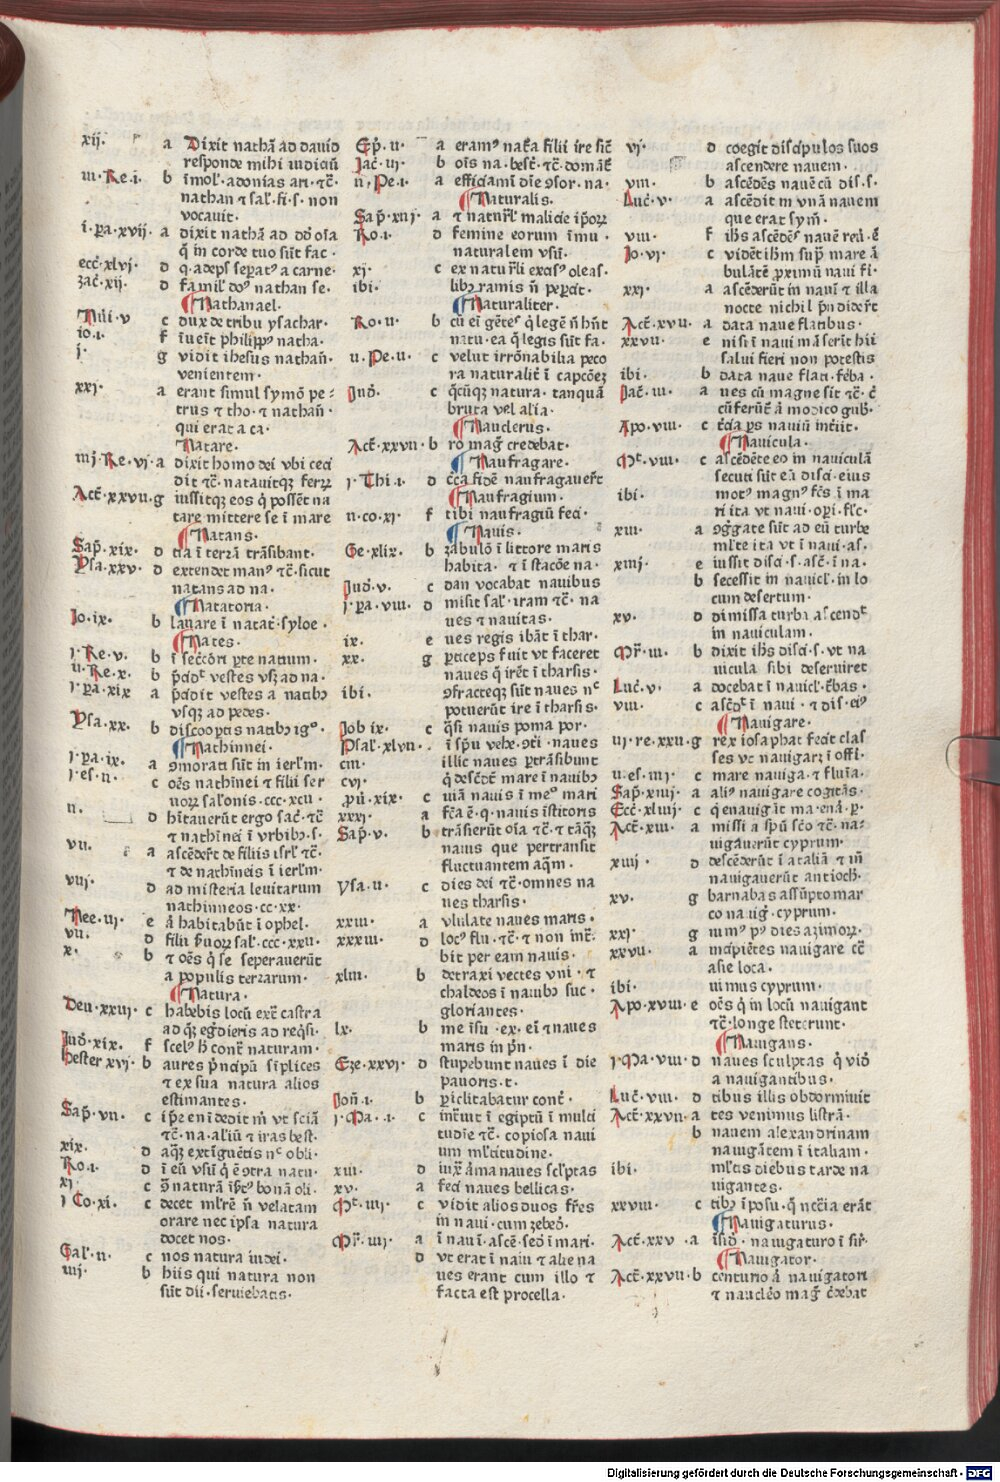 xij. a Dixit nathā ad dauid
responde mihi iudiciū
iii.Re.i. b imol̛.adonias ari.⁊c̄.
nathan ⁊ sal̛.fi.s. non
vocauit.
i.pa.xvij. a dixit nathā ad dd̄ oīa
q̄ in corde tuo sūt fac.
ecc̄.xlvj. d q.adeps sepatꝰ a carne.
zac̄.xij. d famil̛ doꝰ nathan se.
Nathanael.
Nūi.v c dux de tribu ysachar.
io.i. f īueīt philippꝰ natha.
j. g vidit ihesus nathan̄.
venientem.
xxj. a erant simul symō pe⸗
trus ⁊ tho.⁊ nathan̄.
qui erat a ca.
Natare.
iiij.Re.vj a dixit homo dei vbi ceci
dit ⁊c̄.natauitqꝫ ferꝝ
Act̄.xxvii.g iussitqꝫ eos q̄ possēt na
tare mittere se ī mare
Natans.
Sap̄.xix. d tia ī terrā trāsibant.
Ysa.xxv. d extendet manꝰ ⁊c̄.sicut
natans ad na.
Natatoria.
Jo.ix. b lauare ī natat̄.syloe.
Nates.
j.Re.v. b ī sec̄cōri pte natium.
ii.Re.x. b p̄cidt̄ vestes vsqꝫ ad na.
j.pa.xix a p̄cidit vestes a natibꝫ
vsqꝫ ad pedes.
Ysa.xx. b discooptis natibꝫ igᵒ.
Nathinnei.
j.pa.ix. a ꝯmorati sūt in ierl̄m.
j.es.ii. c oēs nathīnei ⁊ filii ser
uoꝝ salōnis.ccc.xcii.
ii. d hītauerūt ergo sac̄.⁊c̄
⁊ nathīnei ī vrbibꝫ.s.
vii. a ascēder̄t de filiis isrl̄ ⁊c̄.
⁊ de nathīneis ī ierl̄m.
viij. d ad misteria leuitarum
nathinneos.cc.xx.
Nee.iij. e ā habitabūt ī ophel.
vii. d filii ẜuoꝝ sal̛.ccc.xxii.
x. b ⁊ oēs q̄ se seperauerūt
a populis terrarum.
Natura.
Deu.xxiij. c habebis locū ext̄ castra
ad qꝫ eḡdieris ad reqⁱsi.
Jud̄.xix. f scelꝰ h̄ cont̄ naturam.
Hester xvj. b aures pⁿcipū sīplices
⁊ ex sua natura alios
estimantes.
Sap̄.vii. c ip̄e enī dedit m̄ vt sciā
⁊c̄.na.aliū ⁊ iras best.
xix. d aqꝫ extīguētis nᶜ obli.
Ro.i. d ī eū vsū q̄ ē ꝯtra natu.
xj c ꝯ̄ naturā īsꝭtꝰ bonā oli.
j Co.xi. c decet ml̄rē n̄ velatam
orare nec ipsa natura
docet nos.
Gal̛.ii. c nos natura iudei.
iiij. b hiis qui natura non
sūt dii.seruiebatis.
Ep̄.ii. a eramꝰ nat̄a filii ire sic̄
Jac̄.iij. b oīs na.best̄.⁊c̄ domāt̄
ii.Pe.i. a efficiamī dīe ꝯsor.na.
Naturalis.
Sap̄.xij a ⁊ natur̄l̄ malicie ip̄oꝝ
Ro.i. d femine eorum īmu.
naturalem vsū.
xj. c ex natur̄li excisꝰ oleas.
ibi. libꝫ ramis n̄ pepcit.
Naturaliter.
Ro.ii. b cū eī gētes q̄ legē n̄ hn̄t
natu.ea q̄ legis sūt fa.
ii.Pe.ii. c velut irrōnabilia peco
ra naturalit̄ ī capcōeꝫ
Jud̄. c q̄cūqꝫ natura.tanquā
bruta vel alia.
Nauclerus.
Act̄.xxvii.b ro maḡ credebat.
Naufragare.
j.Thi.i. d c̄ca fidē naufragauer̄t
Naufragium.
ii.co.xj. f tibi naufragiū feci.
Nauis.
Ge.xlix. b zabulō ī littore maris
habita.⁊ ī stacōe na.
Jud̄.v. c dan vocabat nauibus
j.pa.viii. d misit sal̛.iram ⁊c̄.na
ues ⁊ nauitas.
ix. e ues regis ibāt ī thar.
xx. g pticeps fuit vt faceret
naues q̄ irēt ī tharsis.
ibi. ꝯfracteqꝫ sūt naues nᶜ
potuerūt ire ī tharsis.
Job ix. c qⁱsi nauis poma por.
Psal̛.xlvii. ī sp̄u vehe.ꝯt̄i.naues
ciii. illic naues ptrāsibunt
cvj. q̄ descēdt̄ mare ī nauibꝫ
p̄u.xix. c viā nauis ī meᵒ mari
xxxj. a fc̄a ē.q̄.nauis īstitoris
Sap̄.v. b trāsierūt oīa ⁊c̄.⁊ tāqꝫ
nauis que pertransit
fluctuantem aqꝫm.
Ysa.ii. c dies dei ⁊c̄.omnes na
ues tharsis.
xxiii. a vlulate naues maris.
xxxiii. d locꝰ flu.⁊c̄.⁊ non int̄.
bit per eam nauis.
xliii. b detraxi vectes vni.⁊
chaldeos ī nauibꝫ suc.
gloriantes.
lx. b me īsu.ex.eī ⁊ naues
maris in pⁿ.
Eze.xxvj. d stupebunt naues ī die
pauoris.t.
Jon̄.i. b piclitabatur cont̄.
j.Ma.i. c int̄uit ī egiptū ī multi
tudīe ⁊c̄.copiosa naui
um ml̄titudine.
xiii. d iuxͣ āma naues scl̛ptas
xv. a feci naues bellicas.
Mt̄.iiij. c vidit alios duos fr̄es
in naui.cum zebeō.
Mr̄.iiij. a ī naui.ascē.sed ī mari.
d vt erat ī naui ⁊ alie na
ues erant cum illo ⁊
facta est procella.
vj. d coegit discipulos suos
ascendere nauem.
viii. b ascēdēs nauē cū dis.s.
Luc̄.v. a ascēdit in vnā nauem
que erat sym̄.
viii. f ih̄s ascēdēˢ nauē reu̓.ē
Jo.vj. c vidēt ih̄m sup̄ mare ā
bulātē pximū naui fi.
xxj. a ascēderūt in nauī ⁊ illa
nocte nichil pⁿdider̄t
Act̄.xvii. a data naue flatibus.
xxvii. e nisi ī naui māserīt hii
salui fieri non potestis
ibi. b data naue flati.fēba.
Jac̄.iii. a ues cū magne sit ⁊c̄.c̄
cūferūt̄ a modico gub̄.
Apo.viii. c t̄cia ps nauiū int̄iit.
Nauicula.
Mt̄.viii. c ascēdēte eo in nauiculā
secuti sūt eū disci.eius
ibi. motꝰ magnꝰ fc̄s ī ma
ri ita vt naui.opi.flᶜ.
xiii. a ꝯg̓gate sūt ad eū turbe
ml̄te ita vt ī naui.as.
xiiij. e iussit disci.s.asc̄.ī na.
b secessit in nauicl̛.in lo
cum desertum.
xv. d dimissa turba ascend̄t
in nauiculam.
Mr̄.iii. b dixit ih̄s disci.s.vt na
uicula sibi deseruiret
Luc̄.v. a docebat ī nauicl̛.t̄bas.
viii. c ascēdt̄ ī naui.⁊ dis.eiꝰ
Nauigare.
iij.re.xxii.g rex iosaphat fecit clas
ses vt nauigarꝫ ī offi.
ii.es.iiij c mare nauiga.⁊ fluīa.
Sap̄.xiiij. a aliꝰ nauigare cogitās.
Ecc̄.xliij c q̄ enauigāt ma.enā.p.
Act̄.xiii. a missi a sp̄u sc̄o ⁊c̄.na.
uigauerūt cyprum.
xiiij. d descēderūt ī ataliā ⁊ īn̄
nauigauerūt antioch̄.
xv. g barnabas assūpto mar
co nauig̓.cyprum.
xxj. g nimꝰ pꝰ dies azimoꝝ.
xxvii. a incipiētes nauigare cc̄
asie loca.
ibi. uimus cyprum.
Apo.xviii.e oēs q̄ in locū nauigant
⁊c̄.longe steterunt.
Nauigans.
j.Ma.viii.d naues sculptas q̄ viō
a nauigantibus.
Luc̄.viii. d tibus illis obdormiuit
Act̄.xxvii.a tes venimus listrā.
b nauem alexandrinam
nauigātem ī italiam.
ibi. ml̄tis diebus tarde na
uigantes.
xxviii. c tibꝫ īposu.q̄ nccīa erāt
Nauigaturus.
Act̄.xxv.a īsid̄.nauigaturo ī sir̄.
Nauigator.
Act̄.xxvii.b centurio ā nauigatori
⁊ nauclēo mag̓ c̄debat
Digitalisierung gefördert durch die Deutsche Forschungsgemeinschaft - DFG